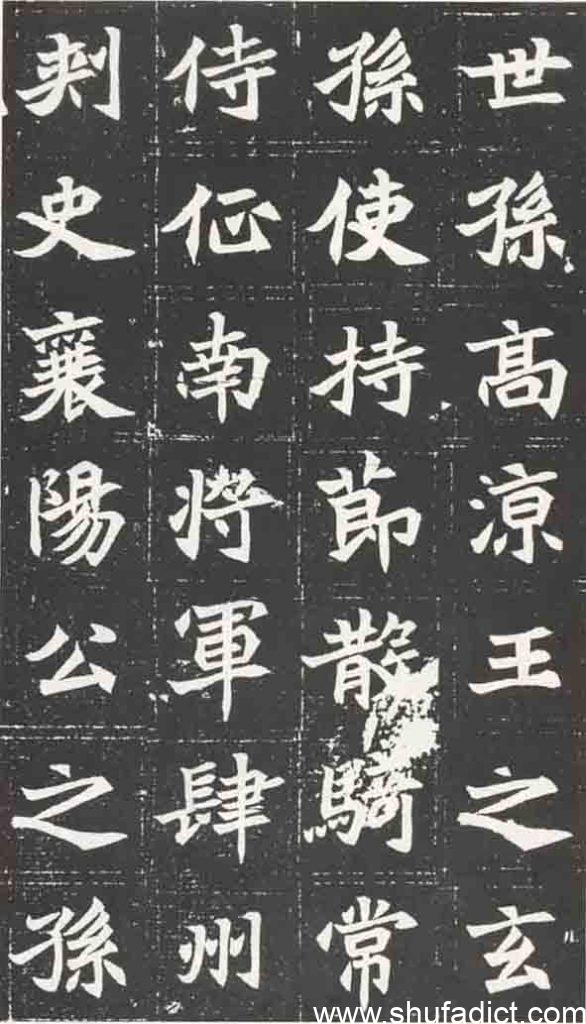 世孫高涼王之玄
孫使持節散騎常
侍征南將軍肆州
刺史襄陽公之孫
www.shufadict.com